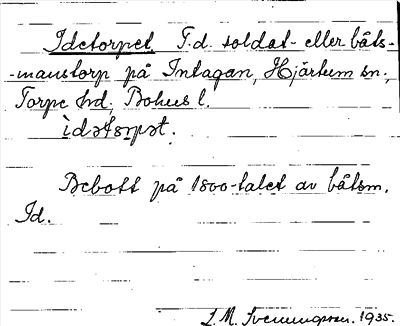 Idetorpet F.d. soldat- eller båts-
-manstorp på Intagan, Hjärtum sn.,
Torpe hd, Bohus l.
ìdətɔrpət.
Bebott på 1800-talet av båtsm.
Id.
L.M. Svenungsson. 1935.